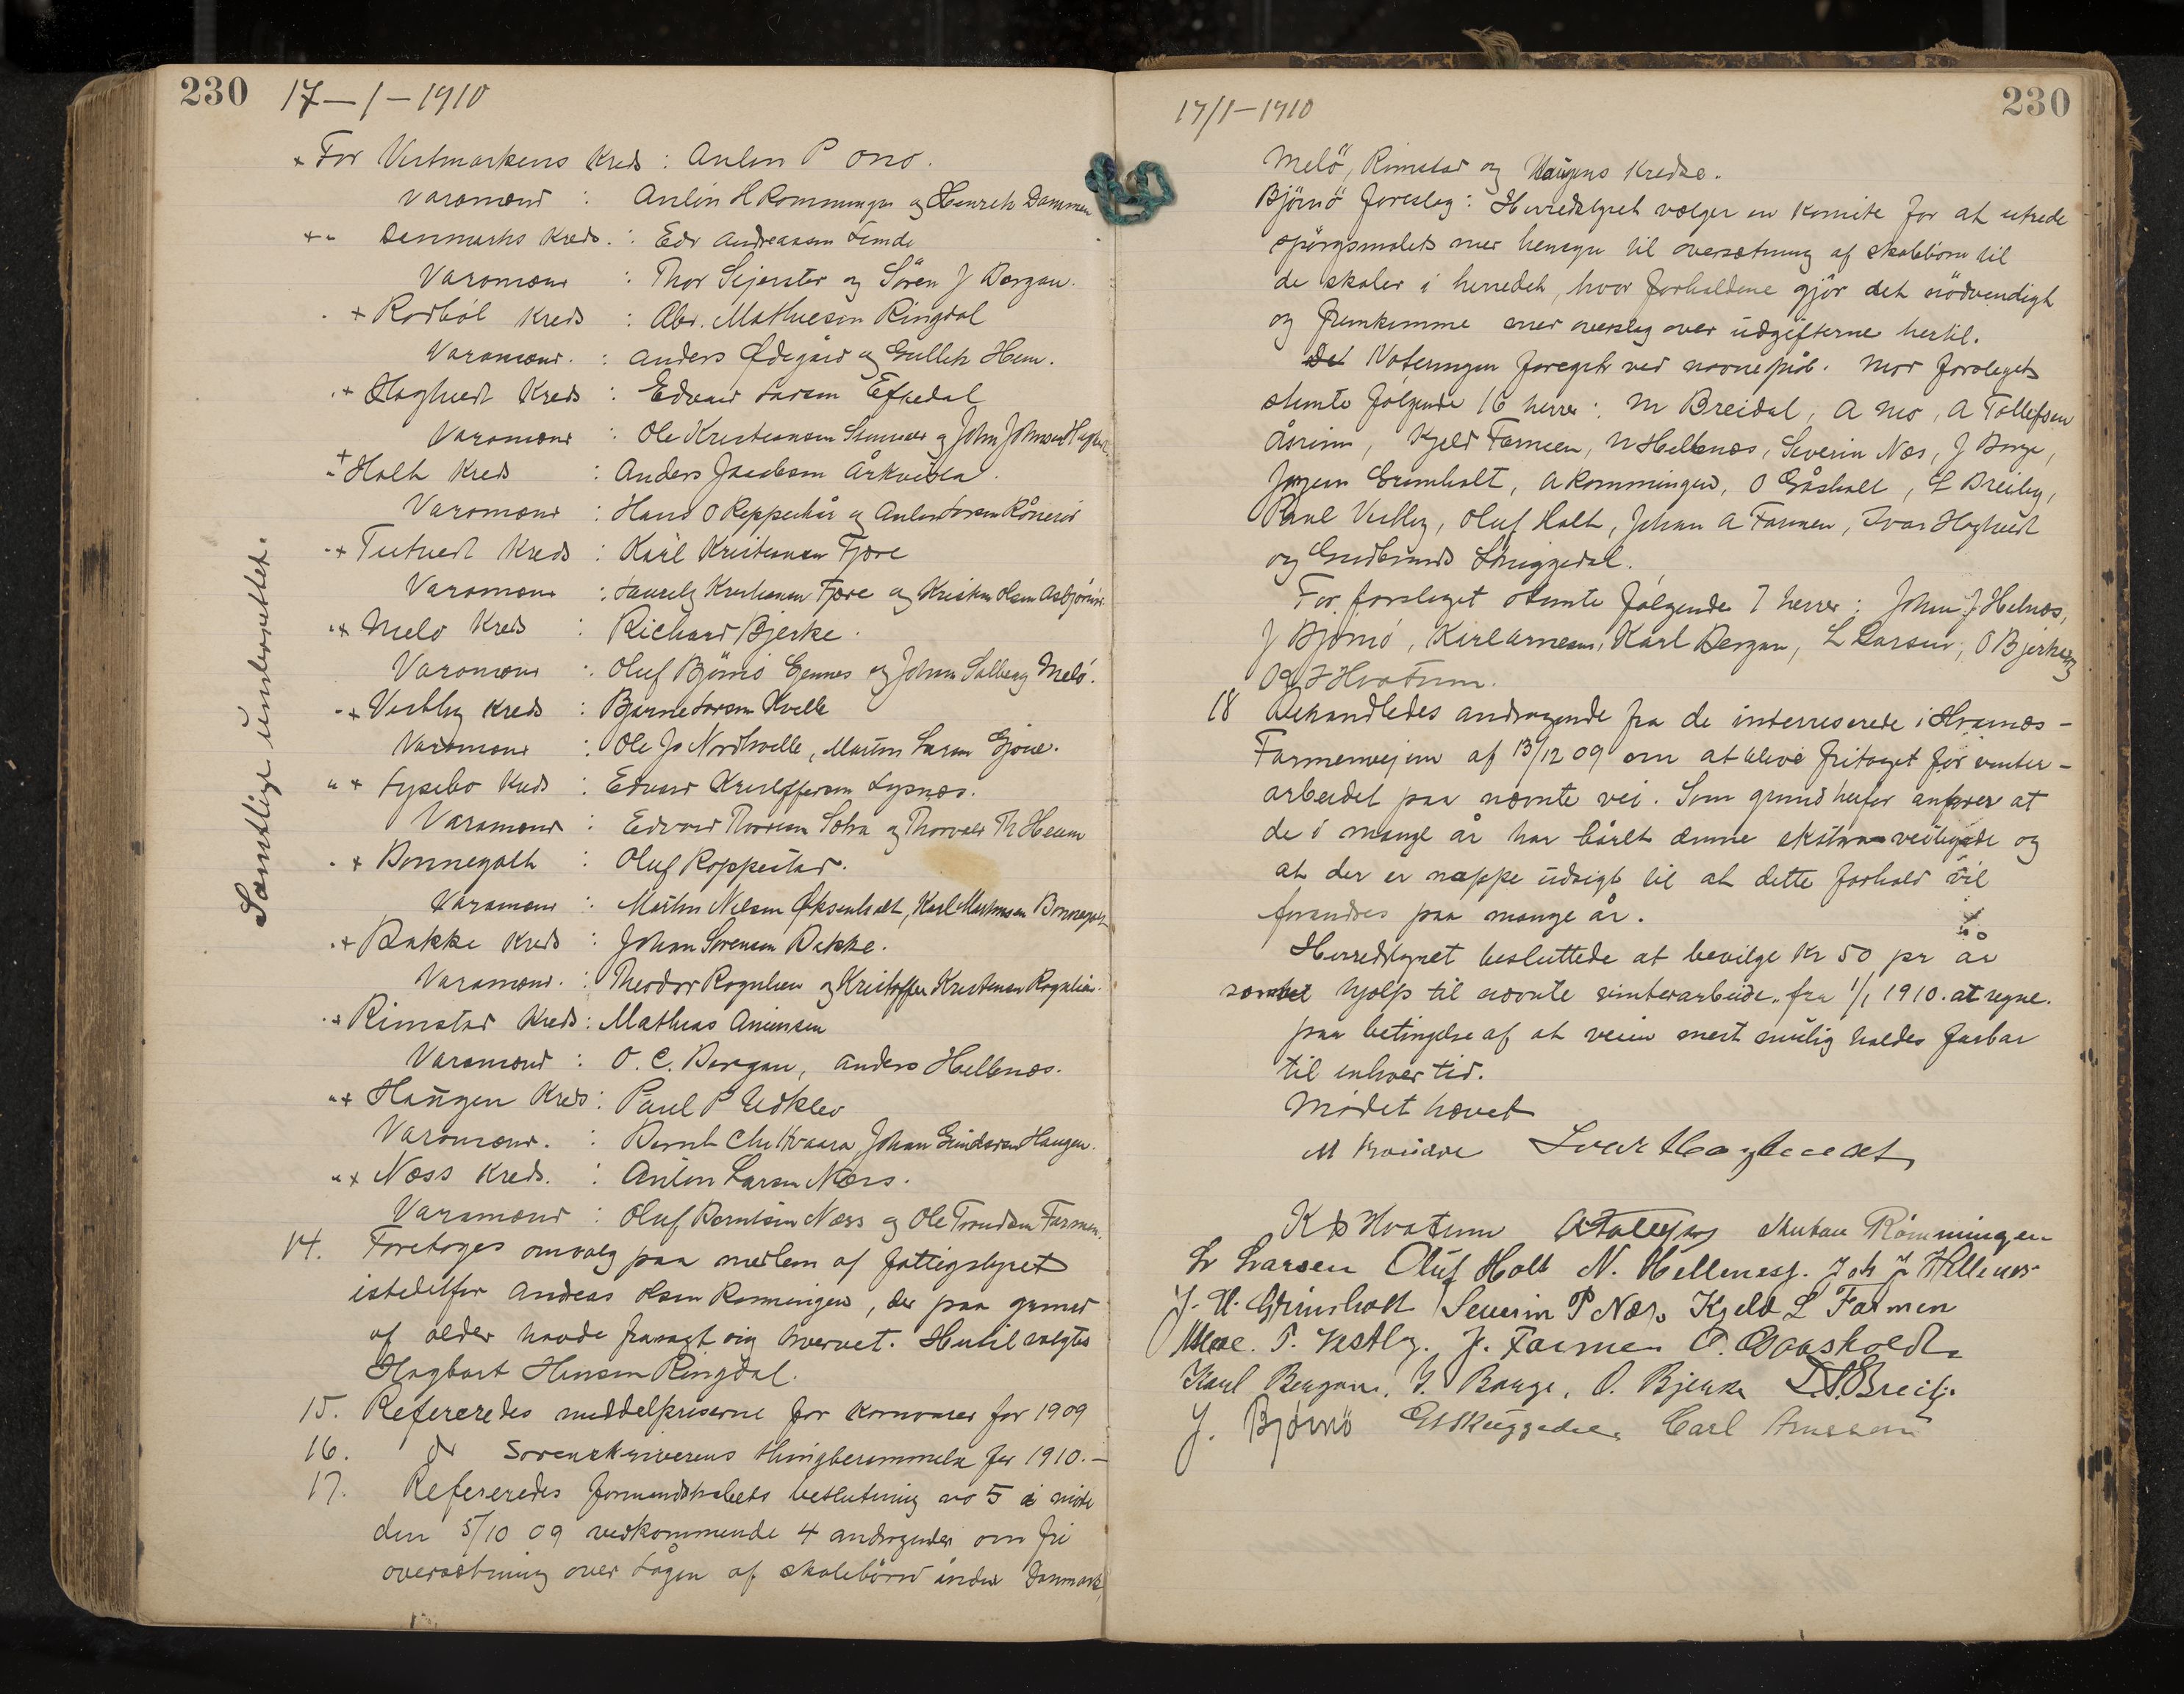 230 17–1–1910
+ For Vestmarkens Kreds : Anton P Ono.
Varamænd : Anton H Rommingen og Henrik Dammen
+ " Danmarks Kreds. : Edv Andreassen Linde
Varamænd : Thor Sijerstøe og Sören J Bergan.
" + Rødböl Kreds : Abr. Mathiesen Ringdal
Varamænd. : Anders Ødegård og Gullik Hem.
" + Haghvedt Kreds : Edvard Larsen Eftedal
Varamænd : Ole Kristiansen og John Johnsen
" + Holt Kreds : Anders Jacobsen Årkvisla.
Varamænd : Hans O Reppeskår og Anton Larsen Rånerød
" + Tutvedt Kreds : Karl Kristiansen Fjære
Varamænd : Lauritz Kristiansen Fjære og Kristen Olsen Asbjörnrö
" + Melö Kreds : Richard Bjerke.
Varamænd : Oluf Björnö Gjennes og Johan Solberg Melö.
" + Vestby Kreds : Bjarne Larsen Kvelle
Varamænd : Ole Js Nordkvelle, Martin Larsen Gjone.
" + Lysebo Kreds : Edvard Kristoffersen Lysnæs.
Varamænd : Edvard Thoresen Sohn og Thorvald Th Heum
" + Bonnegolt : Oluf Roppestad.
Varamænd : Martin Nilsen Öksenholt, Karl Martinsen Bonnegolt
" + Bakke Kreds : Johan Sörensen Bakke.
Varamænd. : Theodor Rognlien og Kristoffer Kristensen Rognlien.
" + Rimstad Kreds : Mathias Amundsen
Varamænd : O. C. Bergan, Anders Hellenæs.
" + Haugen Kreds : Paul P Udklev
Varamænd. : Bernt Chr Kvaara Johan Gundersen Haugen.
" + Næss Kreds. : Anton Larsen Næss.
Varamænd : Oluf Berntsen Næss og Ole Trondsen Farmen.
Samtlige underrettet.
14. Foretoges omvalg paa medlem af fattigstyret
istedetfor Andreas Olsen Romingen, der paa grund
af alder havde frasagt sig hvervet. Hertil valgtes
Hagbart Hansen Ringdal.
15. Refereredes middelpriserne for Kornvarer for 1909
16. do Sorenskriverens thingberammelse for 1910.–
17. Refereredes formandskabets beslutning no 5 i möde
den 5/10 09 vedkommende 4 andragender om fri
oversætning over Lågen af skolebörn under Danmark,
17/1–1910 230
Melö, Rimstad og Haugens Kredse.
Björnö foreslog : Herredstyret vælger en Komite for at utrede
spörgsmålet med hensyn til oversætning af skolebörn til
de skoler i herredet, hvor forholdene gjör det nödvendigt
og fremkomme med overslag over udgifterne hertil.
Det Voteringen foregik ved navneopråb. Mod forslaget
stemte følgende 16 herrer : M Breidal, A Mo, A Tollefsen
Åsrinn, Kjeld Farmen, N Hellenæs, Severin Næs, J Borge,
Jörgen Grimholt, A Rommingen, O Gåsholt, L Breiby,
Paul Vestby, Oluf Holt, Johan A Farmen, Ivar Haghvedt
og Gudbrand Skuggedal.
For forslaget stemte følgende 7 herrer : Johan J Helnæs,
J Bjornö, Karl Arnesen, Karl Bergan, L Larsen, O Bjerke og
og K Hvatum.
18 Behandledes andragende fra de interreserede i Hvamnæs–
Farmenveien af 13/12 09 om at blive fritaget for vinter–
arbeidet paa nævnte vei. Som grund herfor anförer at
de i mange år har bårët denne ekstra veibyrde og
at der er neppe udsigt til at dette forhold vil
forandres paa mange år.
Herredstyret besluttede at bevilge Kr 50 pr år
som hjælp til nævnte vinterarbeide fra 1/1 1910 at regne.
paa betingelse af at veien mest mulig holdes farbar
til enhver tid.
Mödet hævet
M Breidal Ivar Haghvedt
K Hvatum A Tollefsen Anton Römmingen
L Larsen Oluf Holt N. Hellenæss. Joh J Hellenæs
J. H. Grimsholt Severin P Næss Kjeld L Farmen
A Moe. P. Vestby. J. Farmen O. Gaasholdt
Karl Bergan. J. Borge, O. Bjerke L. Breiby.
J. Björnö G Skuggedal. Carl Arnesen